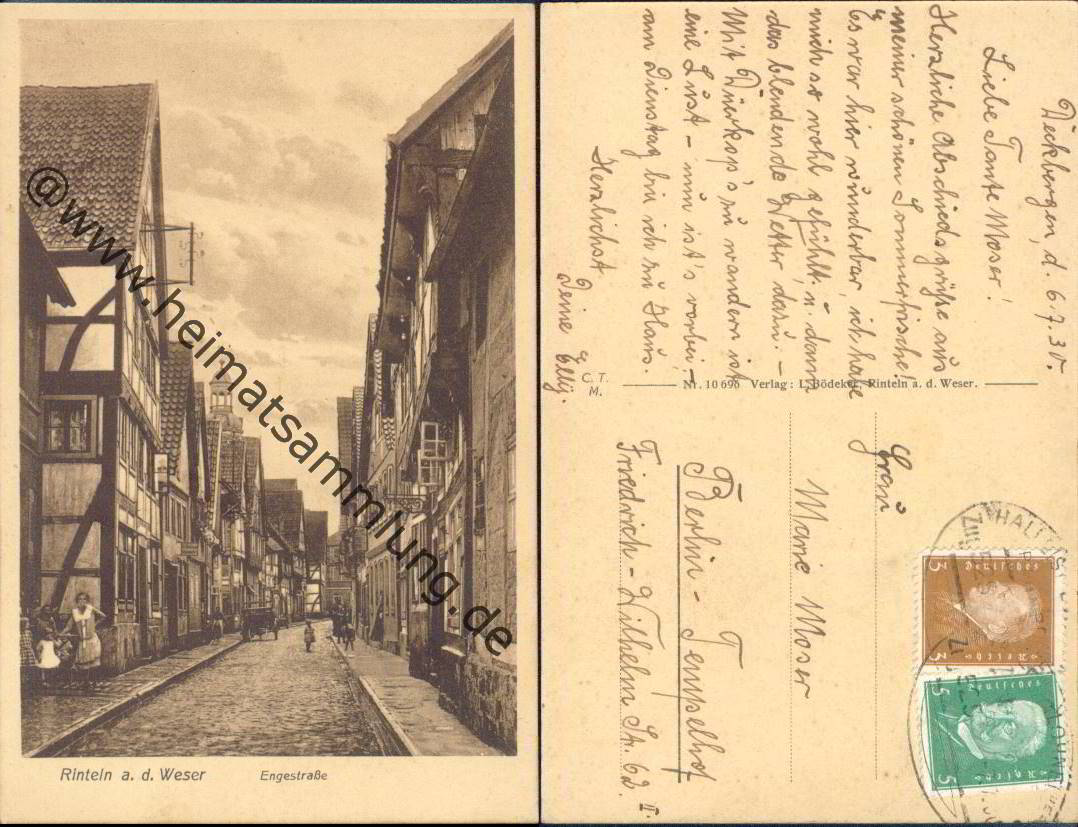 Rinteln a. d. Weser Engestraße
@www.heimatsammlung.de
Deckbergen, d. 6.7.30.
Liebe Tante Moser!
Herzliche Abschiedsgrüße aus
meiner schönen Sommerfrische!
Es war hier wunderbar, ich habe
mich so wohl gefühlt u. dann
das blendende Wetter dazu. -
Mit Dürkop's zu wandern ist
eine Lust - nun ist's vorbei, -
am Dienstag bin ich zu Haus.
Herzlichst
Deine Elly.
C. T.
M.
Nr. 10696 Verlag: L. Bödeker, Rinteln a. d. Weser.
Frau
Marie Moser
Berlin - Tempelhof
Friedrich-Wilhelm St. 62 II.
Deutsches
Reich
3 3
Deutsches
Reich
5 5